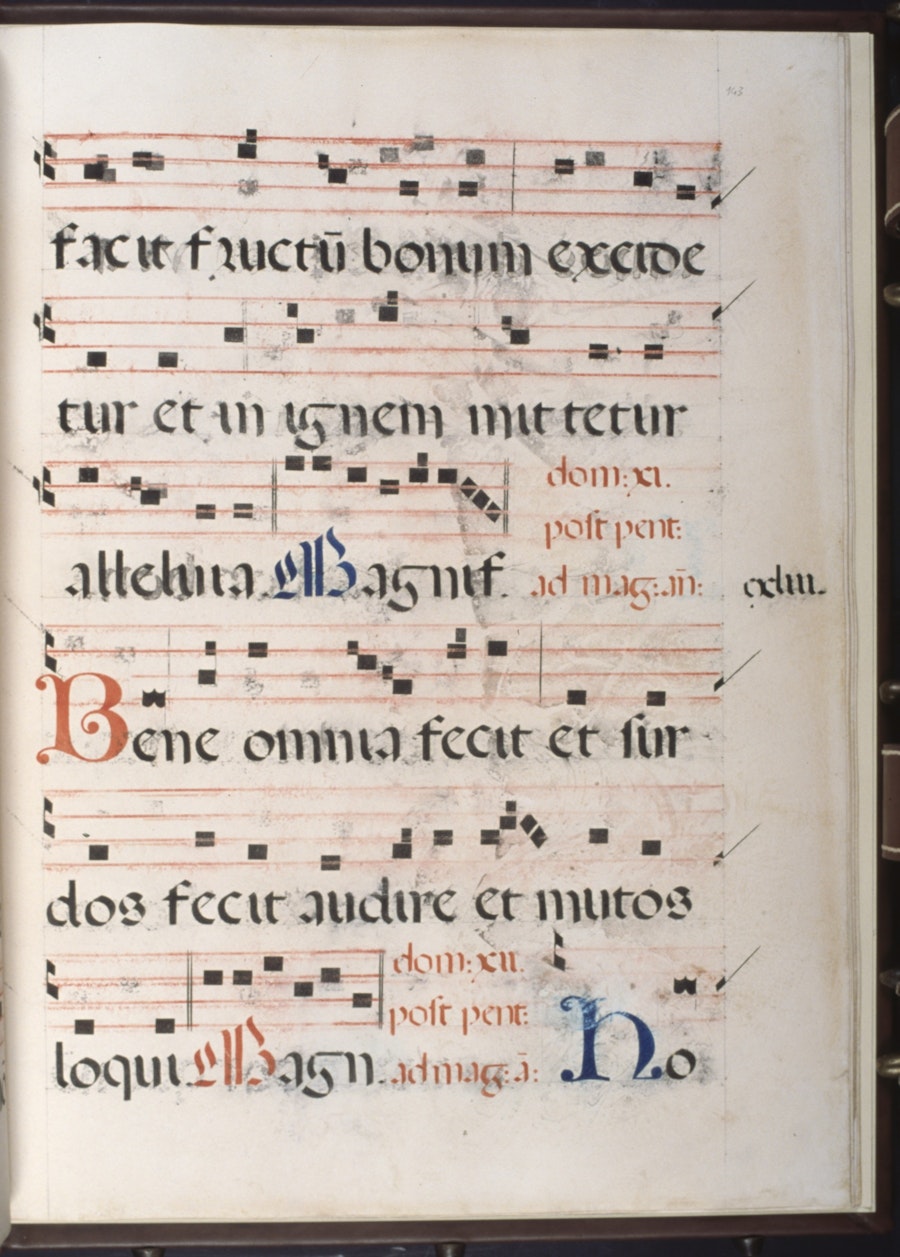 143
facit fructū bonum excide
tur et in ignem mittetur
alleluia. Magnif.
dom: xi.
post pent:
ad mag: añ:
cxliii.
Bene omnia fecit et sur
dos fecit audire et mutos
loqui. Magn.
dom: xii.
post pent:
ad mag: ā:
No